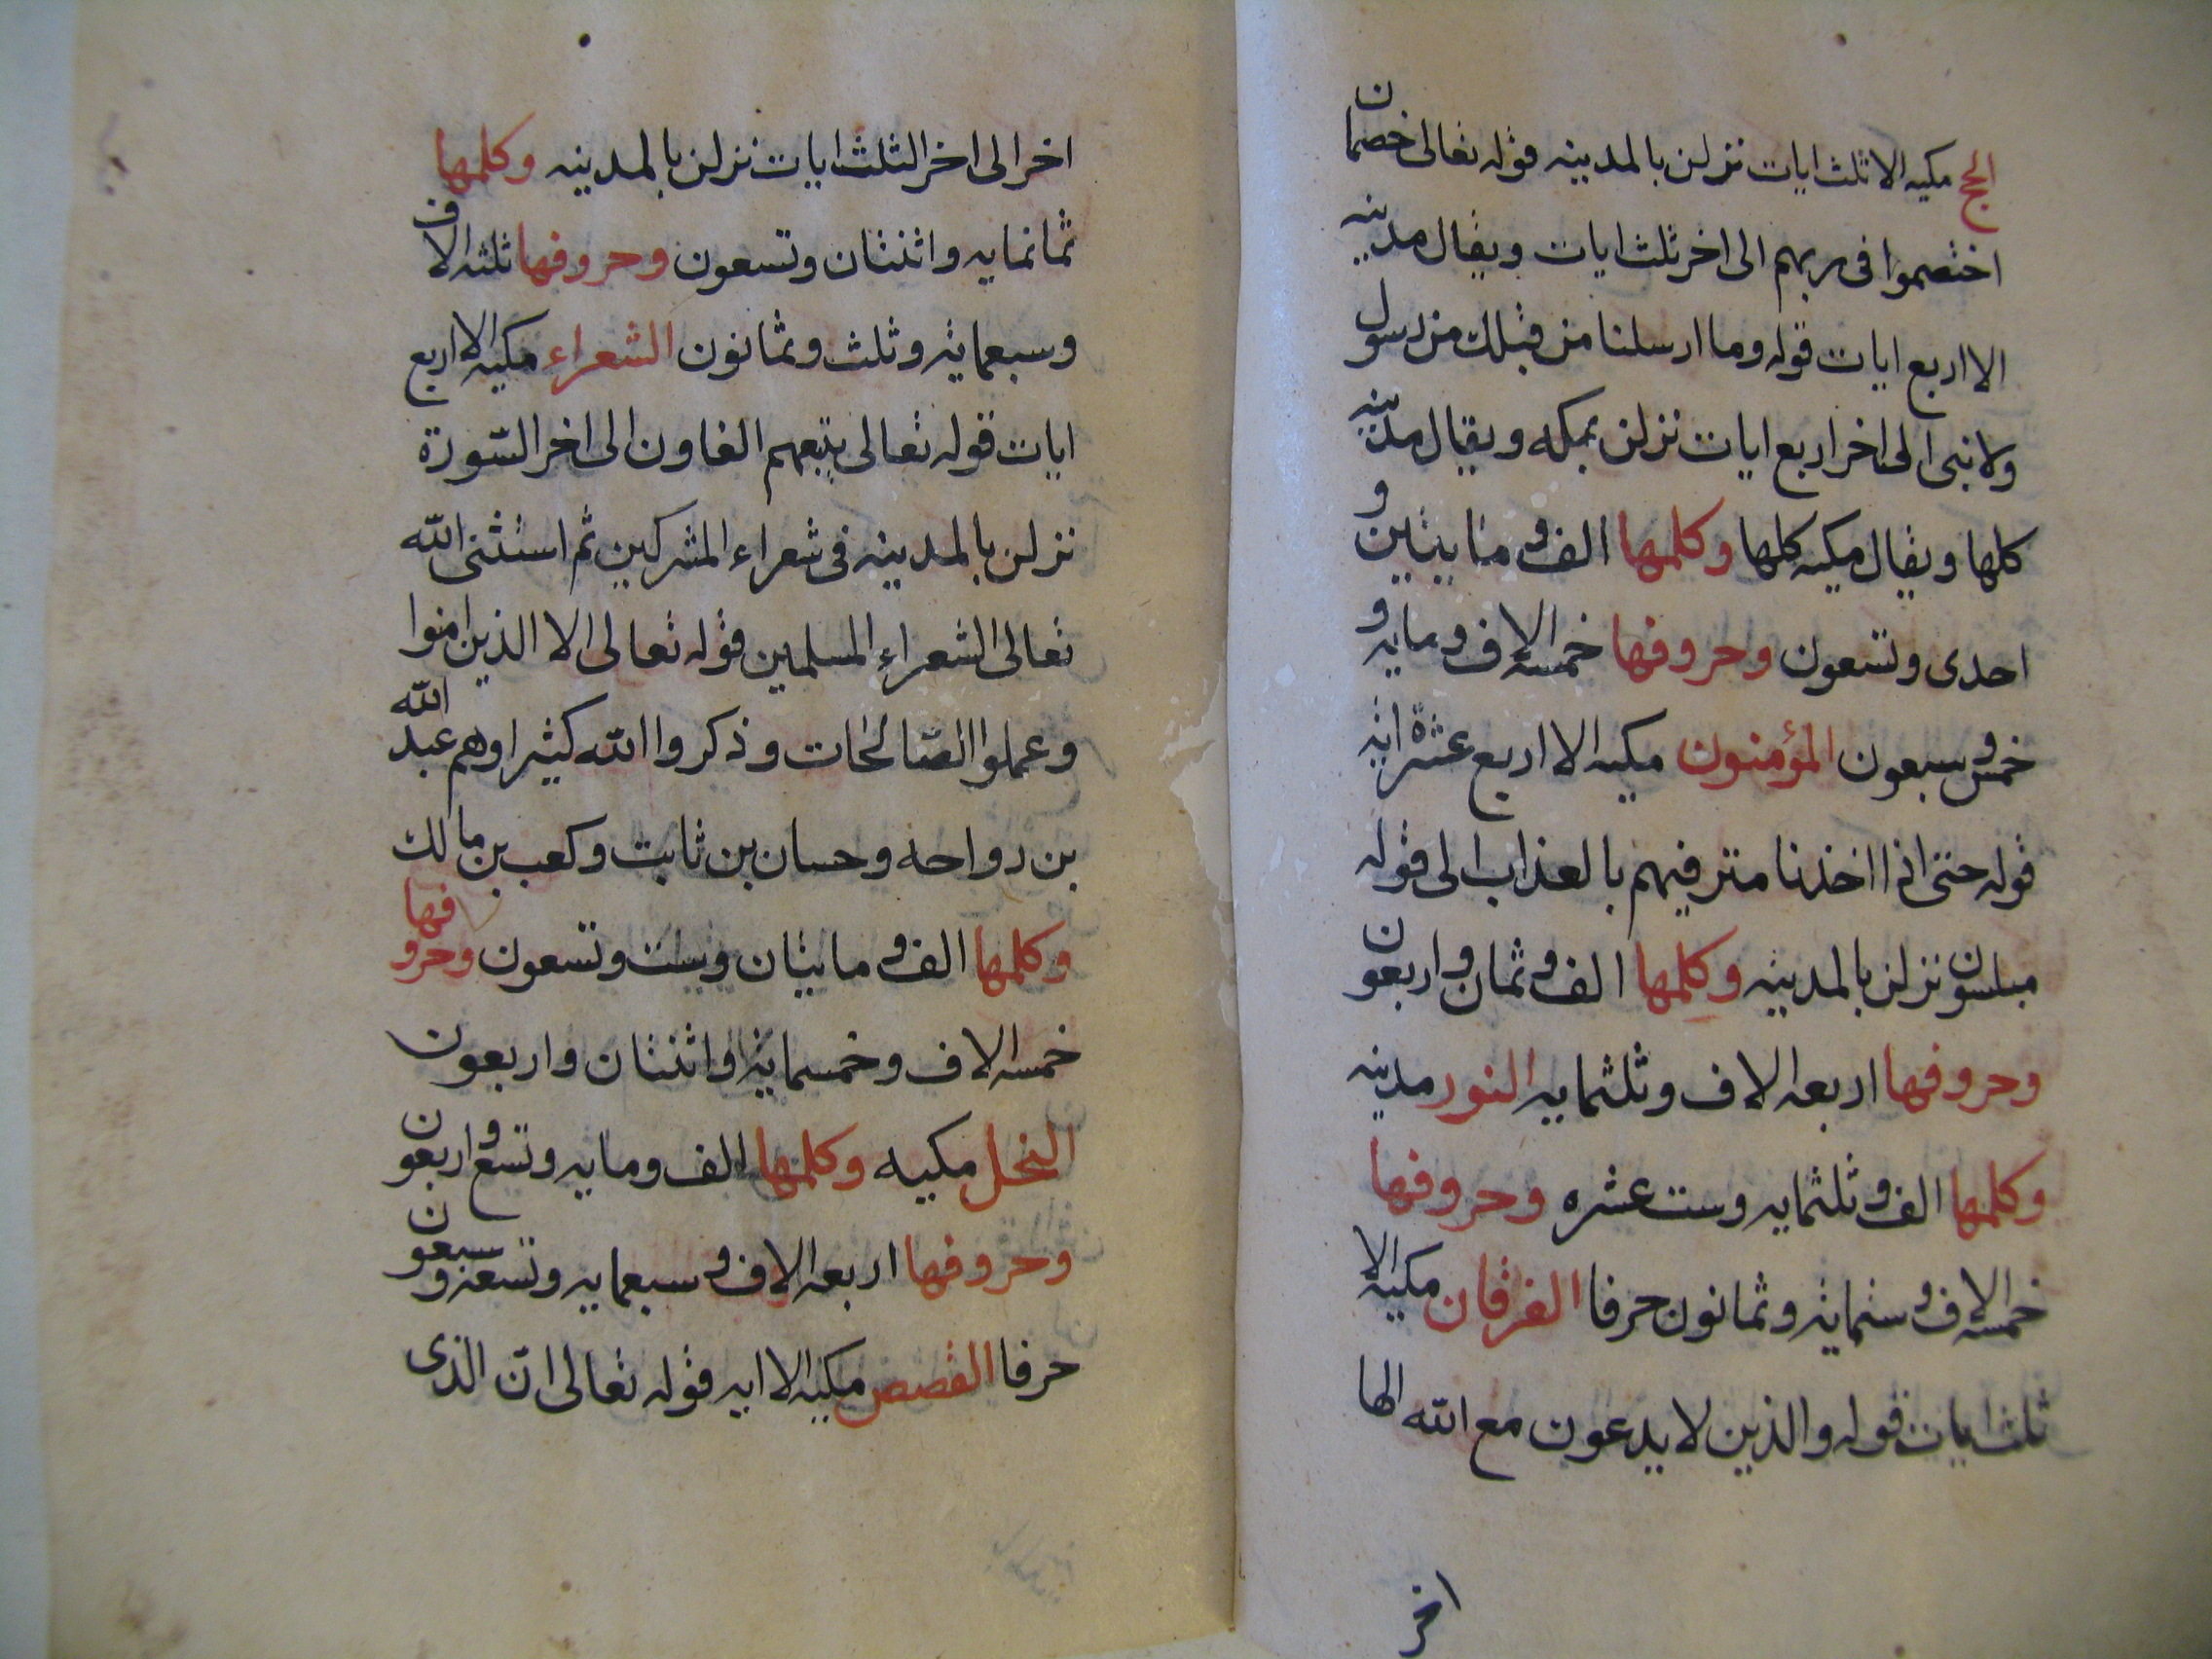 الحج مكيه الا ثلث ايات نزلن بالمدينه قوله تعالى خصمان
اختصموا فى ربهم الى اخر ثلث ايات ويقال مدينه
الا اربع ايات قوله وما ارسلنا من قبلك من رسول
ولا نبى الى اخر اربع ايات نزلن بمكه ويقال مدنيه
كلها ويقال مكيه كلها وكلمها الف و مايتين و
احدى وتسعون وحروفها خمسه الاف ومايه و
خمس وسبعون المؤمنون مكيه الا اربع عشرة ايه
قوله حتى اذا اخذنا مترفيهم بالعذاب الى قوله
مبلسون نزلن بالمدينه وكلمها الف و ثمان و اربعون
وحروفها اربعه الاف وثلثمايه النور مدنيه
وكلمها الف و ثلثمايه وست عشره وحروفها
خمسه الاف و ستمايه وثمانون حرفا الفرقان مكيه الا
ثلث ايات قوله والذين لا يدعون مع الله الها
اخر
اخر الى اخر الثلث ايات نزلن بالمدينه وكلمها
ثمانمايه واثنتان وتسعون وحروفها ثلثه الاف
وسبعمايه وثلث وثمانون الشعراء مكيه الا اربع
ايات قوله تعالى يتبعهم الغاون الى اخر السّورة
نزلن بالمدينه فى شعراء المشركين ثم استثنى الله
تعالى الشعراء المسلمين قوله تعالى الا الذين امنوا
وعملوا الصّالحات وذكروا الله كثيرا وهم عبد الله
بن رواحه وحسان بن ثابت وكعب بن مالك
وكلمها الف و مايتان وست وتسعون وحروفها
خمسه الاف وخمسمايه واثنتان واربعون
النحل مكيه وكلمها الف ومايه وتسع و اربعون
وحروفها اربعه الاف و سبعمايه وتسعه و سبعون
حرفا القصص مكيه الا ايه قوله تعالى انّ الذى